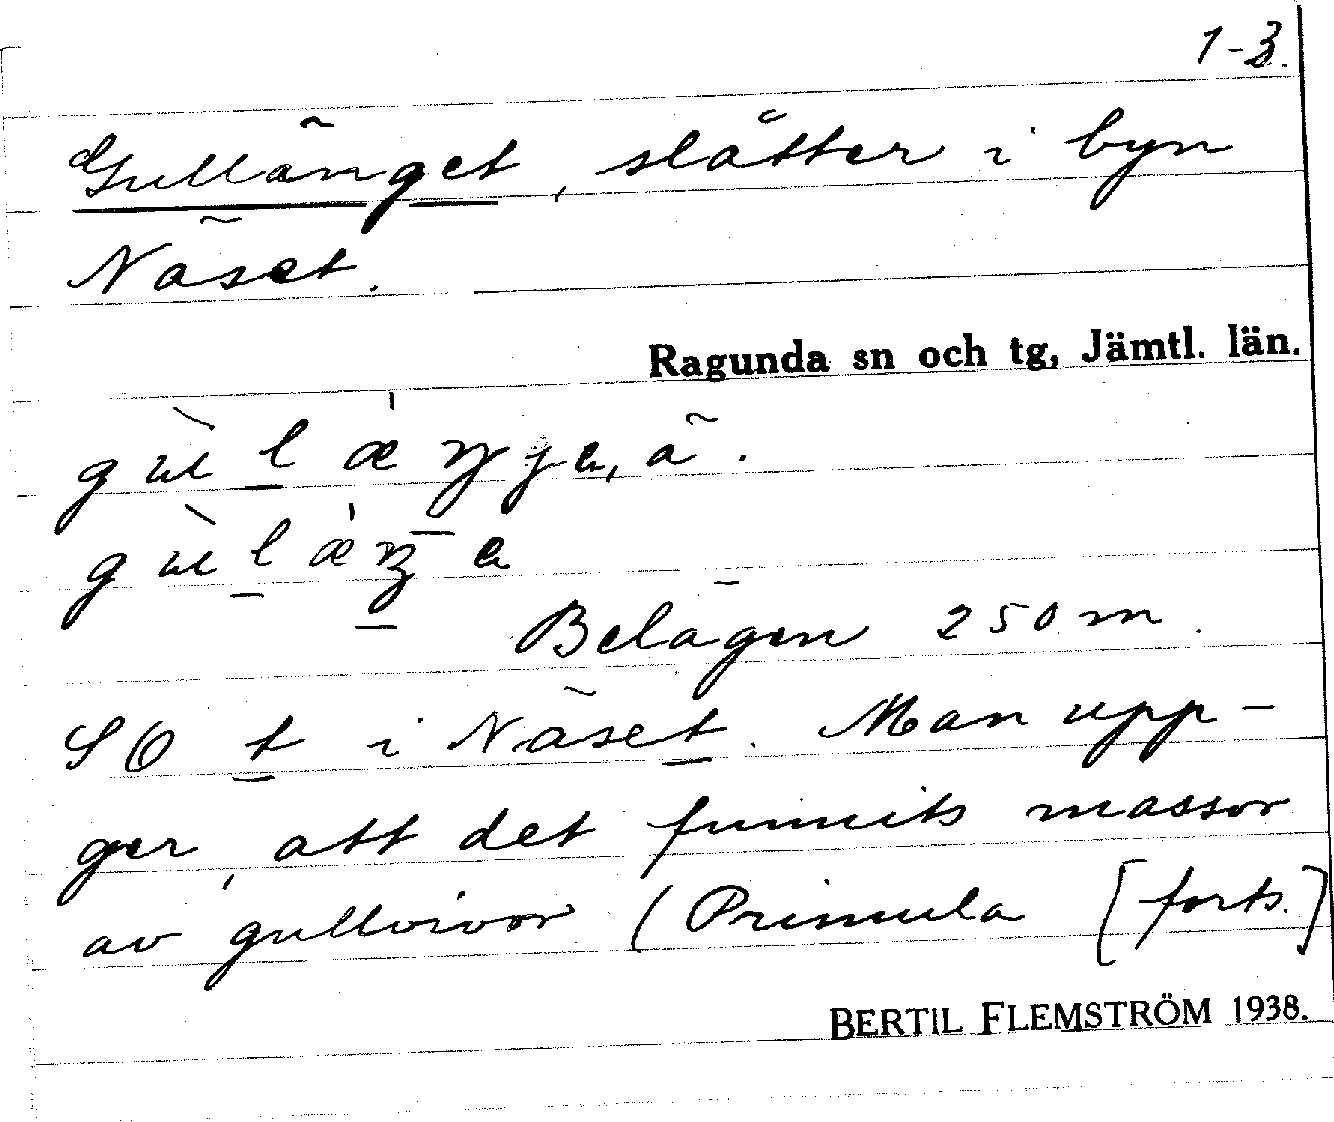 1-3.
Gullänget, slåtter i byn
Näset.
Ragunda sn och tg, Jämtl. län.
Belägen 250 m
SO t i Näset. Man upp-
ger, att det funnits massor
av gullvivor (Primula [forts.]
BERTIL FLEMSTRÖM 1938.